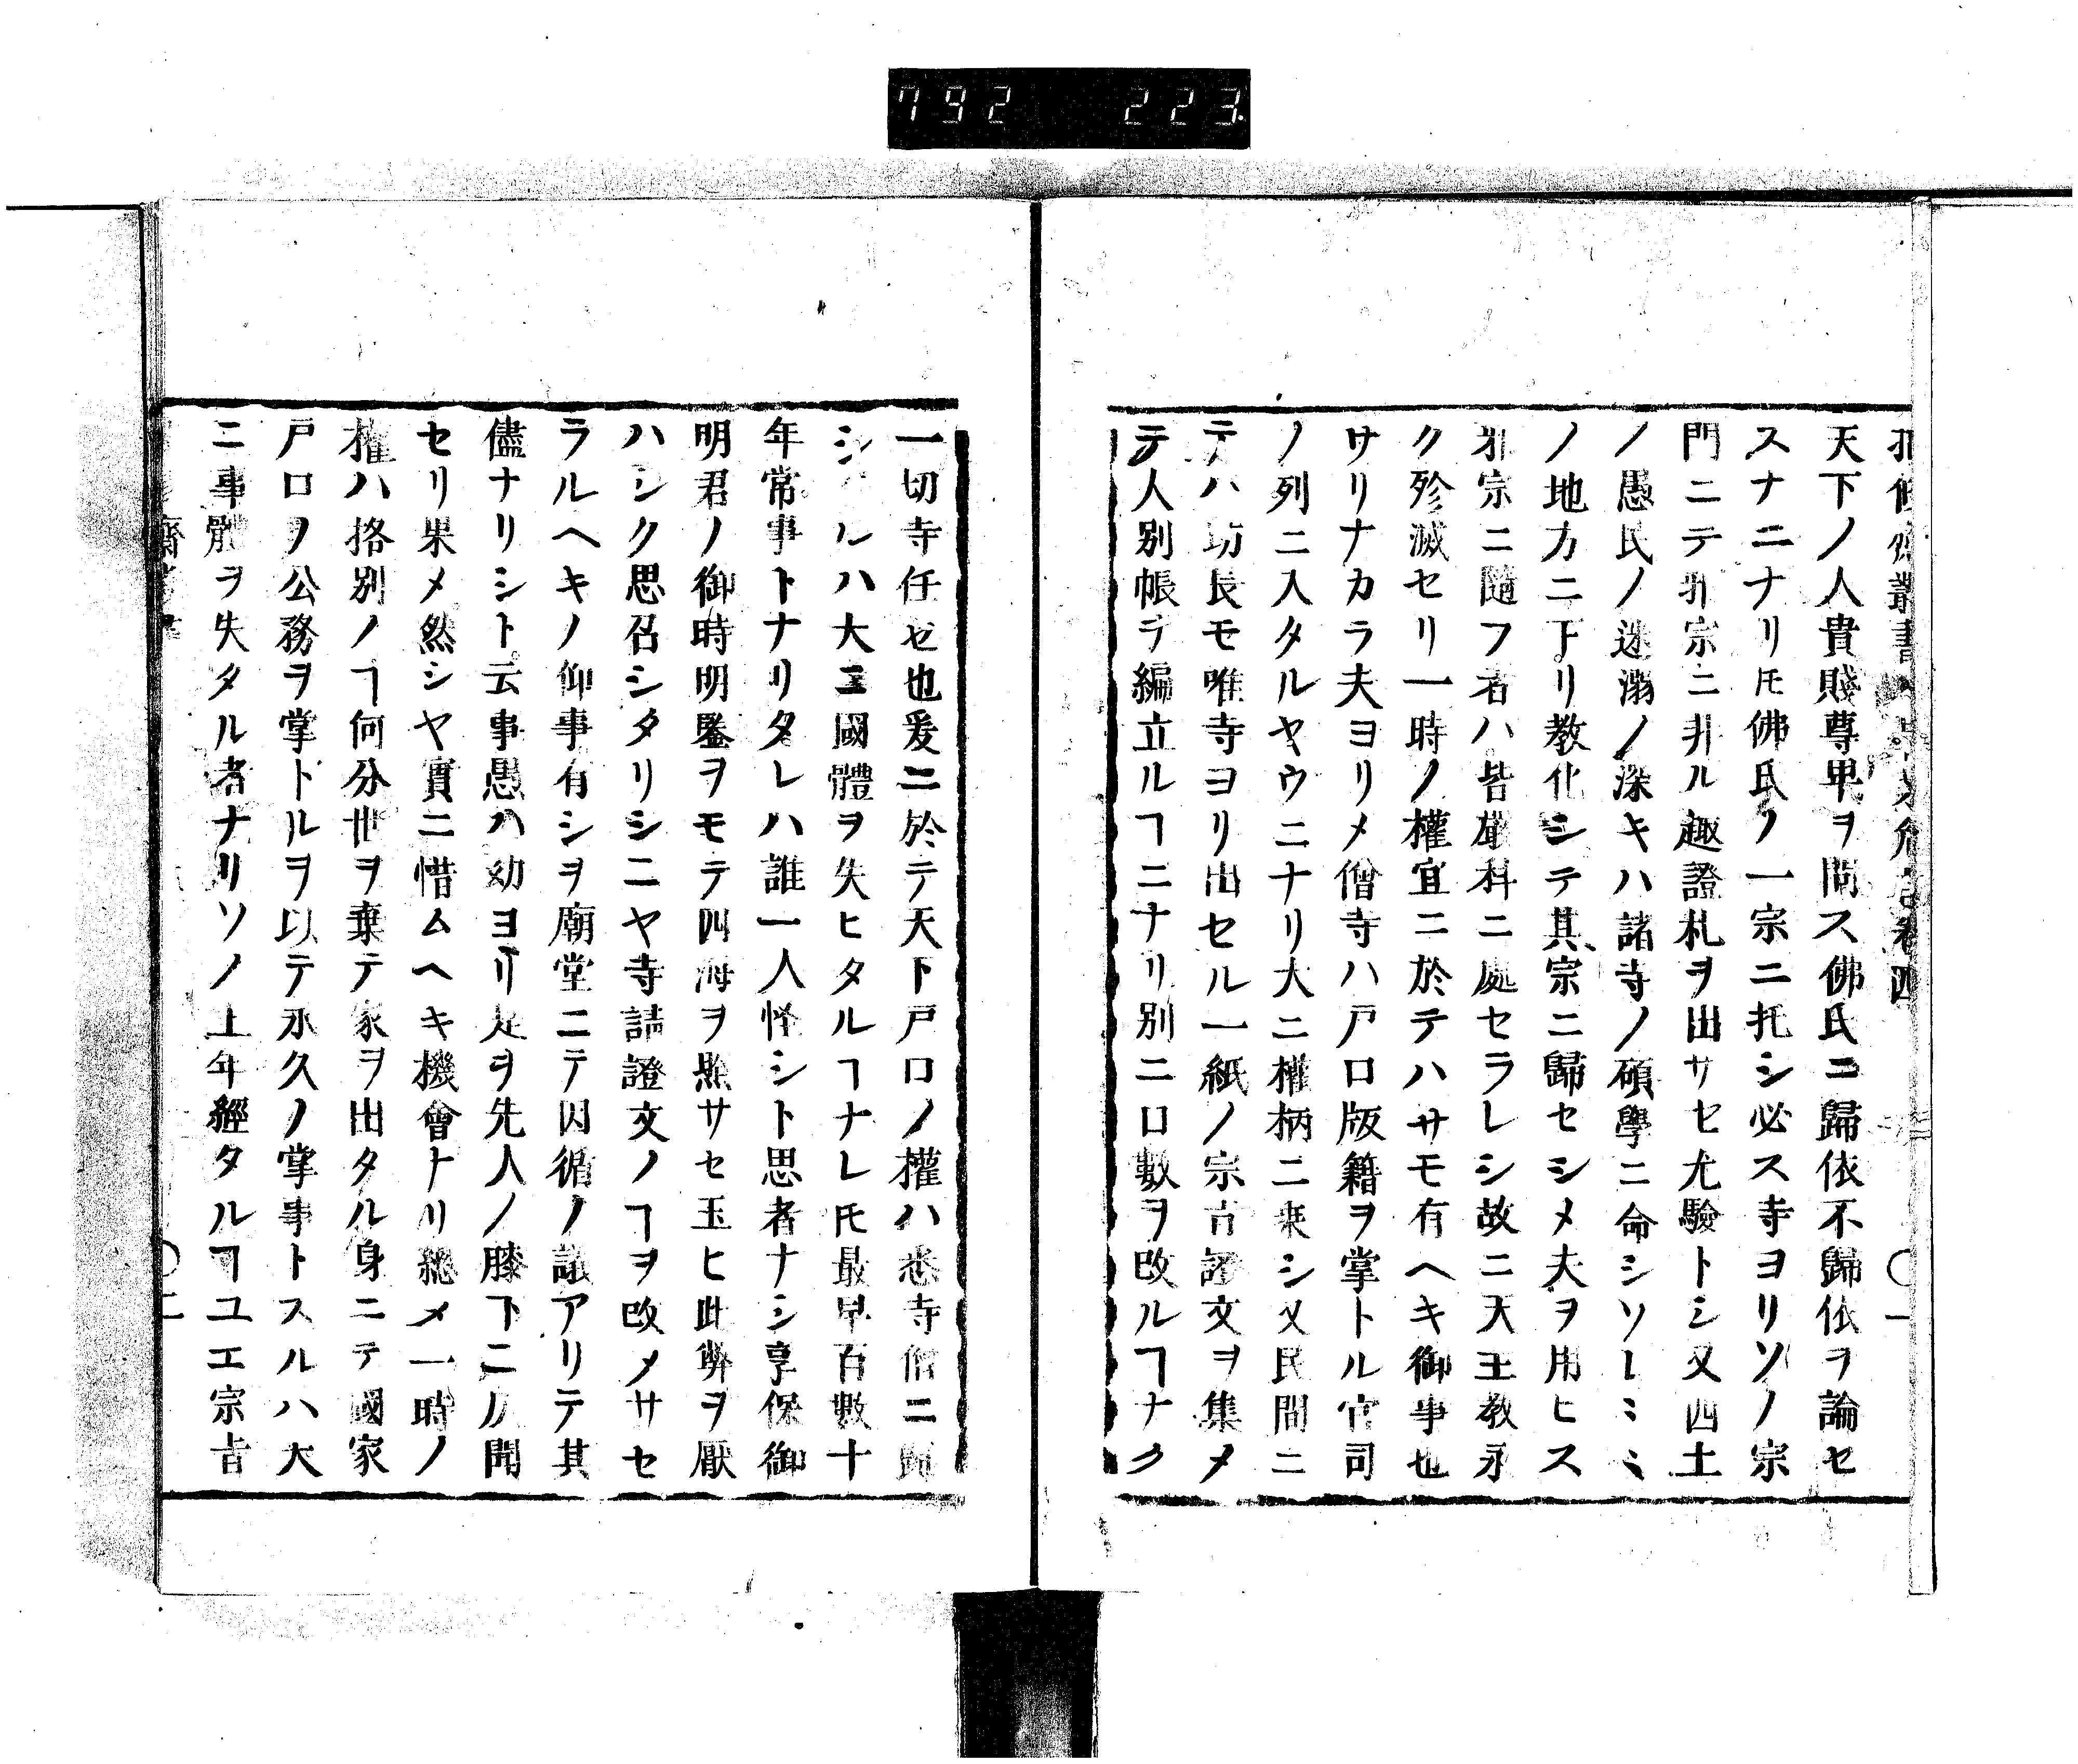 792 223
天下ノ人貴賤尊卑ヲ問ス佛氏ニ歸依不歸依ヲ論セ
スナニナリ𪜈佛氏ノ一宗ニ托シ必ス寺ヨリソノ宗
門ニテ邪宗ニ非ル趣證札ヲ出サセ尤驗トシ又西土
ノ愚民ノ迷溺ノ深キハ諸寺ノ碩學ニ命シソレミミ
ノ地方ニ下リ教化シテ其宗ニ歸セシメ夫ヲ用ヒス
邪宗ニ隨フ者ハ皆嚴科ニ處セラレシ故ニ天主教永
ク殄滅セリ一時ノ權宜ニ於テハサモ有ヘキ御事也
サリナカラ夫ヨリメ僧寺ハ戸口版籍ヲ掌トル官司
ノ列ニ入タルヤウニナリ大ニ權柄ニ乗シ又民間ニ
テハ坊長モ唯寺ヨリ出セル一紙ノ宗旨證文ヲ集メ
テ人別帳ヲ編立ルヿニナリ別ニ口數ヲ改ルヿナク
一切寺任セ也爰ニ於テ天下戸口ノ權ハ悉寺僧ニ歸
シルハ大ニ國體ヲ失ヒタルヿナレ𪜈最早百數十
年常事トナリタレハ誰一人怪シト思者ナシ享保御
明君ノ御時明鑒ヲモテ四海ヲ照サセ玉ヒ此弊ヲ厭
ハシク思召シタリシニヤ寺請證文ノヿヲ改メサセ
ラルヘキノ仰事有シヲ廟堂ニテ因循ノ議アリテ其
儘ナリシト云事愚ハ幼ヨリ是ヲ先人ノ膝下ニ仄聞
セリ果メ然シヤ實ニ惜ムヘキ機會トナリ總メ一時ノ
權ハ挌別ノヿ何分世ヲ棄テ家ヲ出タル身ニテ國家
戸口ヲ公務ヲ掌トルヲ以テ永久ノ掌事トスルハ大
ニ事體ヲ失タル者ナリソノ上年經タルヿユエ宗旨